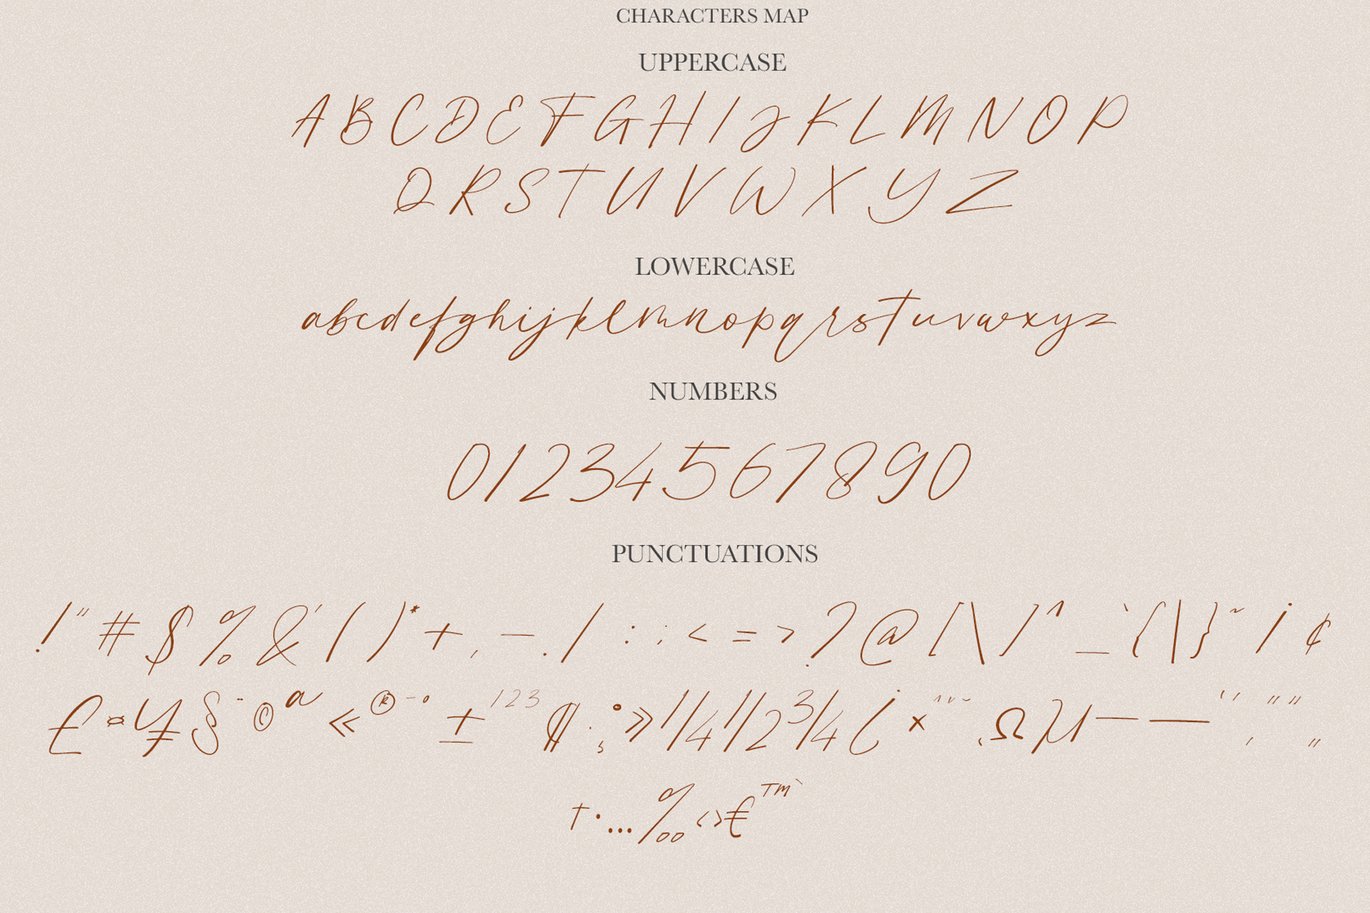 CHARACTERS MAP
UPPERCASE
A B C D E F G H I J K L M N O P
Q R S T U V W X Y Z
LOWERCASE
abcdefghijklmnopqrstuvwxyz
NUMBERS
01234567890
PUNCTUATIONS
! " # $ % & ' ( ) * + , - . / : ; < = > ? @ [ \ ] ^ _ ` { | } ~ ¡ ¢
£ ¤ ¥ § ¨ © ª « ® ¯ ° ± ¹ ² ³ ¶ · ¸ º » ¼ ½ ¾ ¿ × ˆ ˇ ˘ ˛ Ω μ – — ‘ ’ ‚ “ ” „
† • … ‰ ‹ › € ™ `